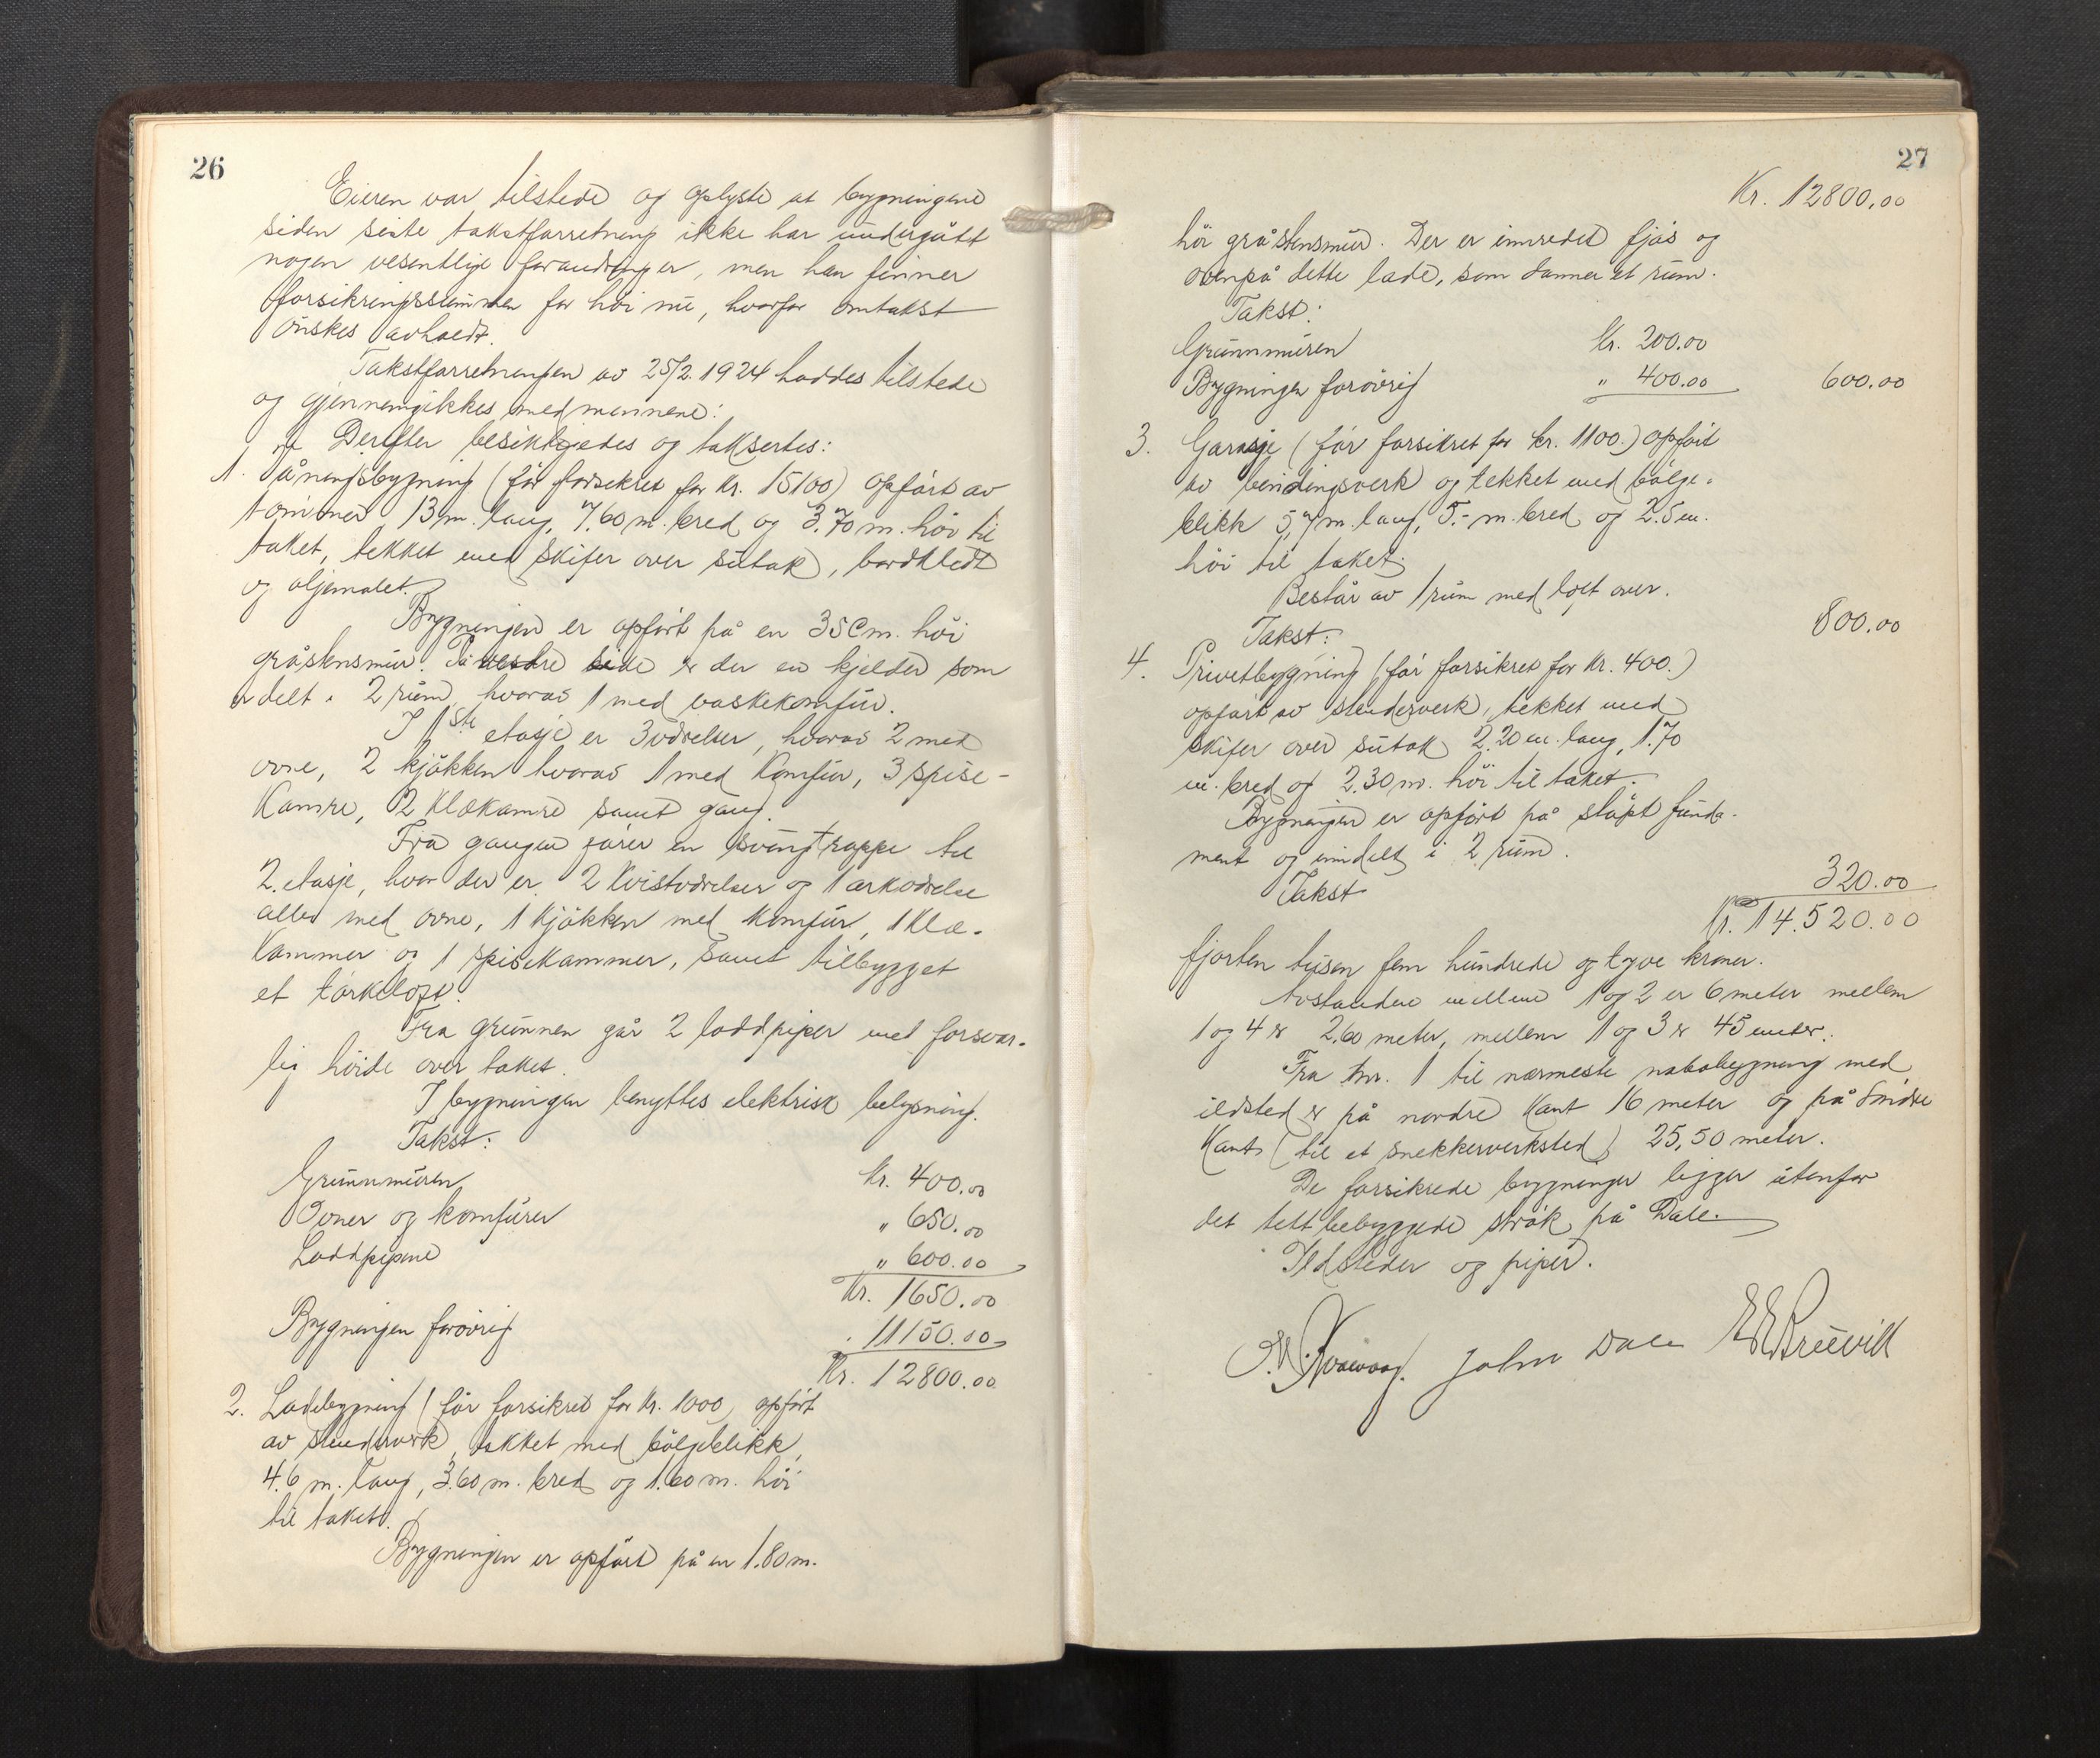 26
Eieren var tilstede og oplyste at bygningene
siden siste takstforretning ikke har undergått
nogen vesentlige forandringer, men han finner
forsikringssummen for höi nu, hvorfor omtakst
önskes avholdt.
Takstforretningen av 25/2. 1924 haddes tilstede
og gjennemgikkes med mennene:
Derefter besiktigedes og taksertes:
1. Våningsbygning (för forsikret for kr. 15100) opfört av
tömmer 13 m. lang, 7.60 m. bred og 3.70 m. höi til
taket, tekket med skifer over sutak, bordkledt
og oljemalet.
Bygningen er opfört på en 35 cm. höi
gråstensmur. På vestre side er der en kjelder som
er delt i 2 rum, hvorav 1 med vaskekomfur.
I 1ste etasje er 3 værelser, hvorav 2 med
ovne, 2 kjökken hvorav 1 med komfur, 3 spise-
kamre, 2 klækamre samt gang.
Fra gangen förer en svingtrappe til
2. etasje, hvor der er 2 kvistværelser og 1 arkværelse
alle med ovne, 1 kjökken med komfur, 1 klæ-
kammer og 1 spisekammer, samt tilbygget
et törkeloft.
Fra grunnen går 2 loddpiper med forsvar-
lig höide over taket.
I bygningen benyttes elektrisk belysning.
Takst:
Grunnmuren kr. 400.00
Ovner og komfurer " 650.00
Loddpipene " 600.00
Kr. 1650.00
Bygningen forövrig 11150.00
Kr. 12800.00
2. Ladebygning (för forsikret for kr. 1000) opfört
av stenderverk, tekket med bölgeblikk,
4.6 m. lang, 3.60 m. bred og 1.60 m. höi
til taket.
Bygningen er opfört på en 1.80 m.
27
Kr. 12800.00
höi gråstensmur. Der er innredet fjös og
ovenpå dette lade, som danner et rum.
Takst:
Grunnmuren Kr. 200.00
Bygningen forövrig " 400.00 600.00
3. Garasje (för forsikret for kr. 1100.) opfört
av bindingsverk og tekket med bölge-
blikk 5,7 m. lang, 5.- m. bred og 2.5 m.
höi til taket.
Består av 1 rum med loft over.
Takst: 800.00
4. Privetbygning (för forsikret for kr. 400.)
opfört av stenderverk, tekket med
skifer over sutak 2.20 m. lang, 1.70
m. bred og 2.30 m. höi til taket.
Bygningen er opfört på stöpt funda-
ment og inndelt i 2 rum.
Takst 320.00
Kr. 14.520.00
fjorten tusen fem hundrede og tyve kroner.
Avstandene mellem 1 og 2 er 6 meter mellem
1 og 4 er 2,60 meter, mellem 1 og 3 er 45 meter.
Fra bnr. 1 til nærmeste nabobygning med
ildsted er på nordre kant 16 meter og på söndre
kant (til et snekkerverksted) 25,50 meter.
De forsikrede bygninger ligger utenfor
det tett bebyggede strök på Dale.
Ildsteder og piper.
John Dale